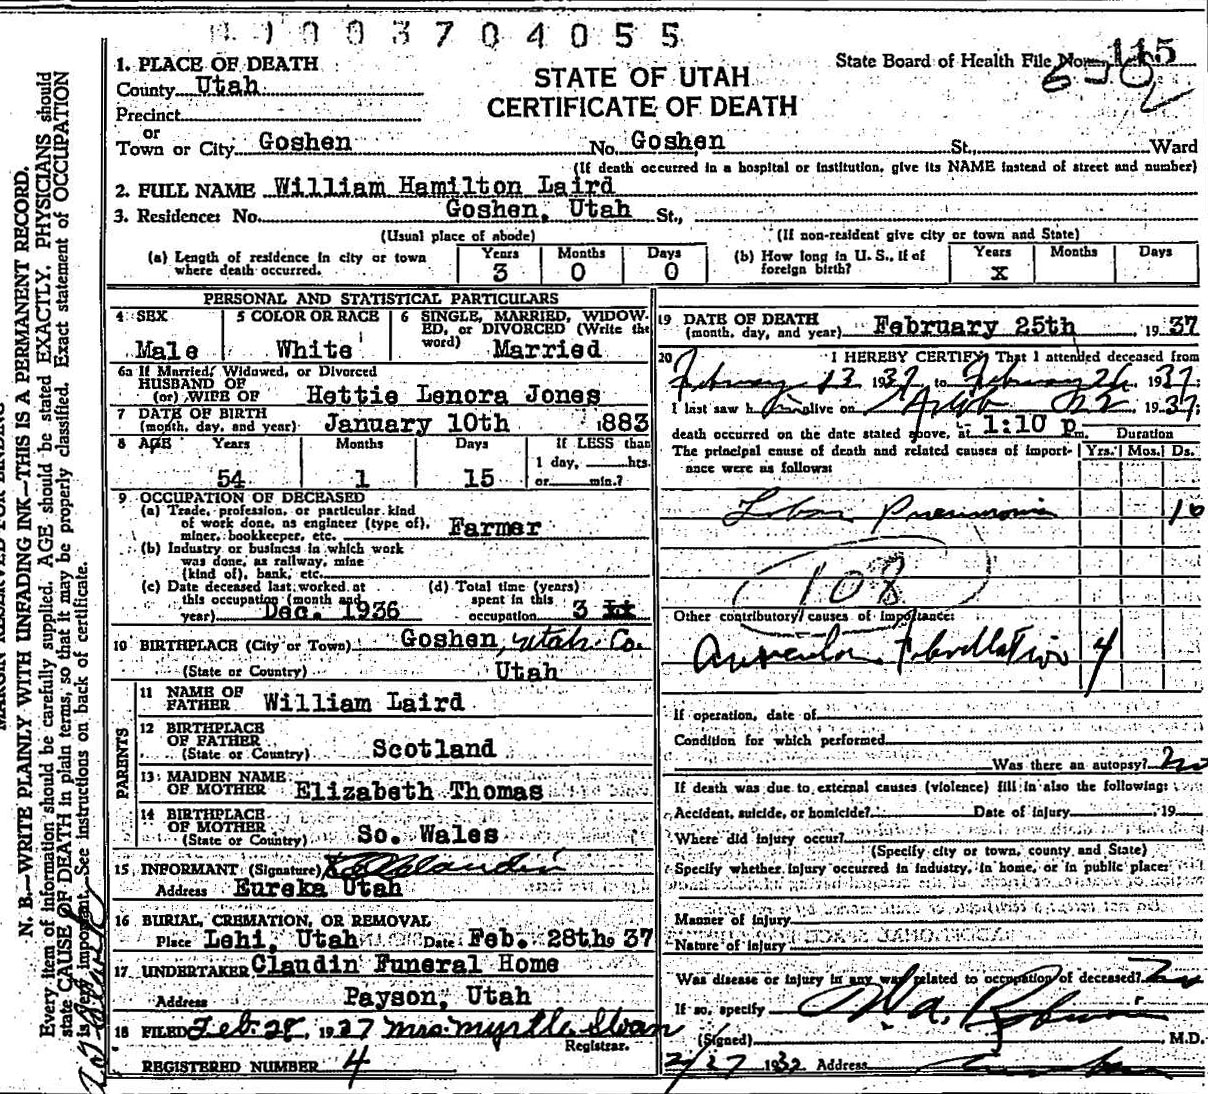 1003704055
State Board of Health File No. 115
1. PLACE OF DEATH
STATE OF UTAH
CERTIFICATE OF DEATH
County Utah
Precinct
or
Town or City Goshen No. Goshen St. Ward
(If death occurred in a hospital or institution, give its NAME instead of street and number)
2. FULL NAME William Hamilton Laird
3. Residence: No. Goshen, Utah St.,
(Usual place of abode) (If non-resident give city or town and State)
(a) Length of residence in city or town where death occurred. Years 3 Months 0 Days 0
(b) How long in U. S., if of foreign birth? Years X Months Days
PERSONAL AND STATISTICAL PARTICULARS
4 SEX Male
5 COLOR OR RACE White
6 SINGLE, MARRIED, WIDOWED, or DIVORCED (Write the word) Married
6a If Married, Widowed, or Divorced
HUSBAND OF
(or) WIFE OF Hettie Lenora Jones
7 DATE OF BIRTH
(month, day, and year) January 10th 1883
8 AGE Years 54 Months 1 Days 15 If LESS than 1 day, hrs. or min.?
9 OCCUPATION OF DECEASED
(a) Trade, profession, or particular kind
of work done, as engineer (type of),
miner, bookkeeper, etc. Farmer
(b) Industry or business in which work
was done, as railway, mine
(kind of), bank, etc.
(c) Date deceased last worked at
this occupation (month and
year) Dec. 1936
(d) Total time (years)
spent in this
occupation 3
10 BIRTHPLACE (City or Town) Goshen, Utah Co.
(State or Country) Utah
PARENTS
11 NAME OF
FATHER William Laird
12 BIRTHPLACE
OF FATHER
(State or Country) Scotland
13 MAIDEN NAME
OF MOTHER Elizabeth Thomas
14 BIRTHPLACE
OF MOTHER
(State or Country) So. Wales
15 INFORMANT (Signature) Claudin
Address Eureka Utah
16 BURIAL, CREMATION, OR REMOVAL
Place Lehi, Utah Date Feb. 28th, 37
17 UNDERTAKER Claudin Funeral Home
Address Payson, Utah
18 FILED Feb. 28, 1937 Mrs. Myrtle Sloan
Registrar.
REGISTERED NUMBER 4
19 DATE OF DEATH
(month, day, and year) February 25th 1937
20 I HEREBY CERTIFY, That I attended deceased from
February 13 1937 to February 26 1937;
I last saw him alive on 1937;
death occurred on the date stated above, at 1:10 p m.
Duration
The principal cause of death and related causes of importance were as follows: Yrs. Mos. Ds.
Lobar Pneumonia 10
108
Other contributory causes of importance:
Auricular Fibrillation 4
If operation, date of
Condition for which performed
Was there an autopsy? No
If death was due to external causes (violence) fill in also the following:
Accident, suicide, or homicide? Date of injury 19
Where did injury occur?
(Specify city or town, county and State)
Specify whether injury occurred in industry, in home, or in public place:
Manner of injury
Nature of injury
Was disease or injury in any way related to occupation of deceased? No
If so, specify
(Signed) M.D.
Address
N. B.—WRITE PLAINLY WITH UNFADING INK—THIS IS A PERMANENT RECORD.
Every item of information should be carefully supplied. AGE should be stated EXACTLY. PHYSICIANS should
state CAUSE OF DEATH in plain terms, so that it may be properly classified. Exact statement of OCCUPATION
is very important. See instructions on back of certificate.